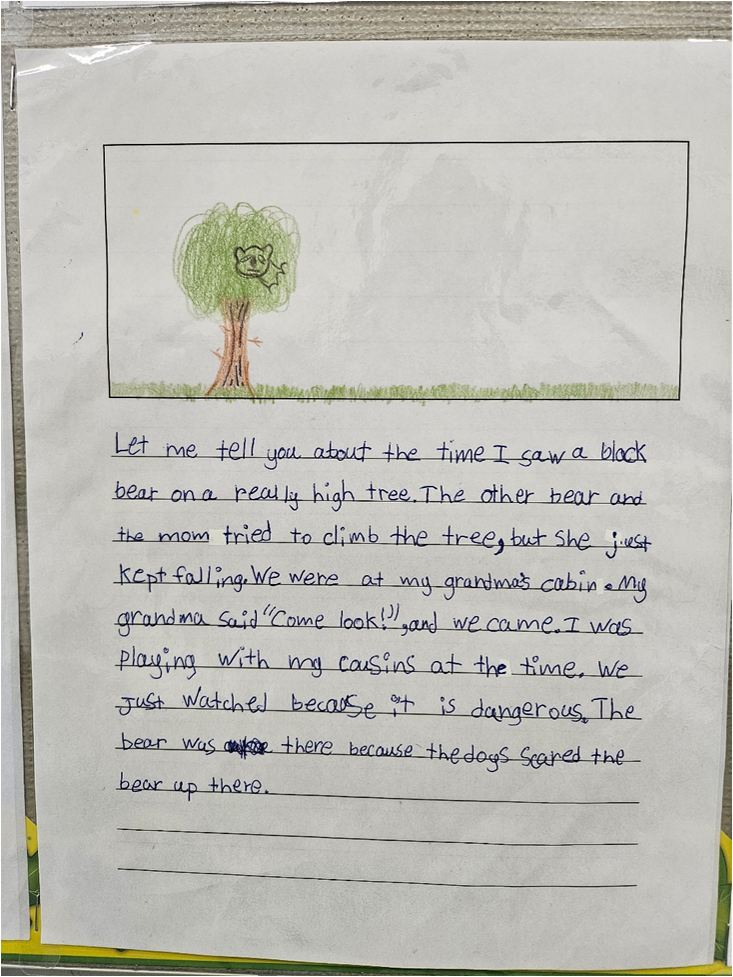 Let me tell you about the time I saw a black
bear on a really high tree. The other bear and
the mom tried to climb the tree, but she just
kept falling. We were at my grandma's cabin. My
grandma said "Come look!", and we came. I was
playing with my cousins at the time. We
just watched because it is dangerous. The
bear was there because the dogs scared the
bear up there.